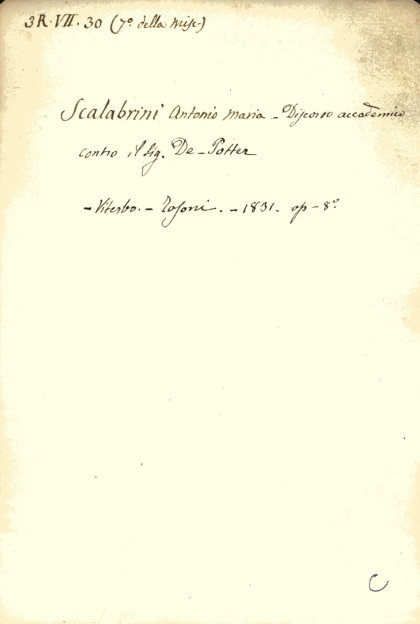 3R·VII·30 (7º della Misc-)
Scalabrini Antonio Maria - Discorso accademico
contro il Sig. De-Potter
- Viterbo. - Tosoni. - 1831. op - 8º
C